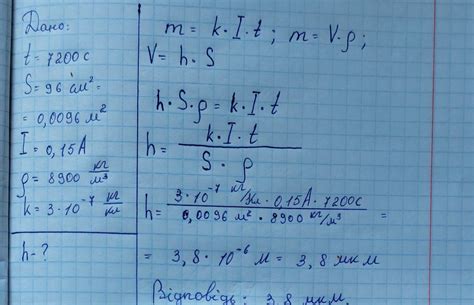 Дано:
t = 7200 с
S = 96 см² =
= 0,0096 м²
I = 0,15 А
ρ = 8900 кг/м³
k = 3·10⁻⁷ кг/Кл
h - ?
m = k·I·t; m = V·ρ;
V = h·S
h·S·ρ = k·I·t
h = k·I·t / S·ρ
h = 3·10⁻⁷ кг/Кл · 0,15А · 7200с / 0,0096 м² · 8900 кг/м³ =
= 3,8·10⁻⁶ м = 3,8 мкм
Відповідь: 3,8 мкм